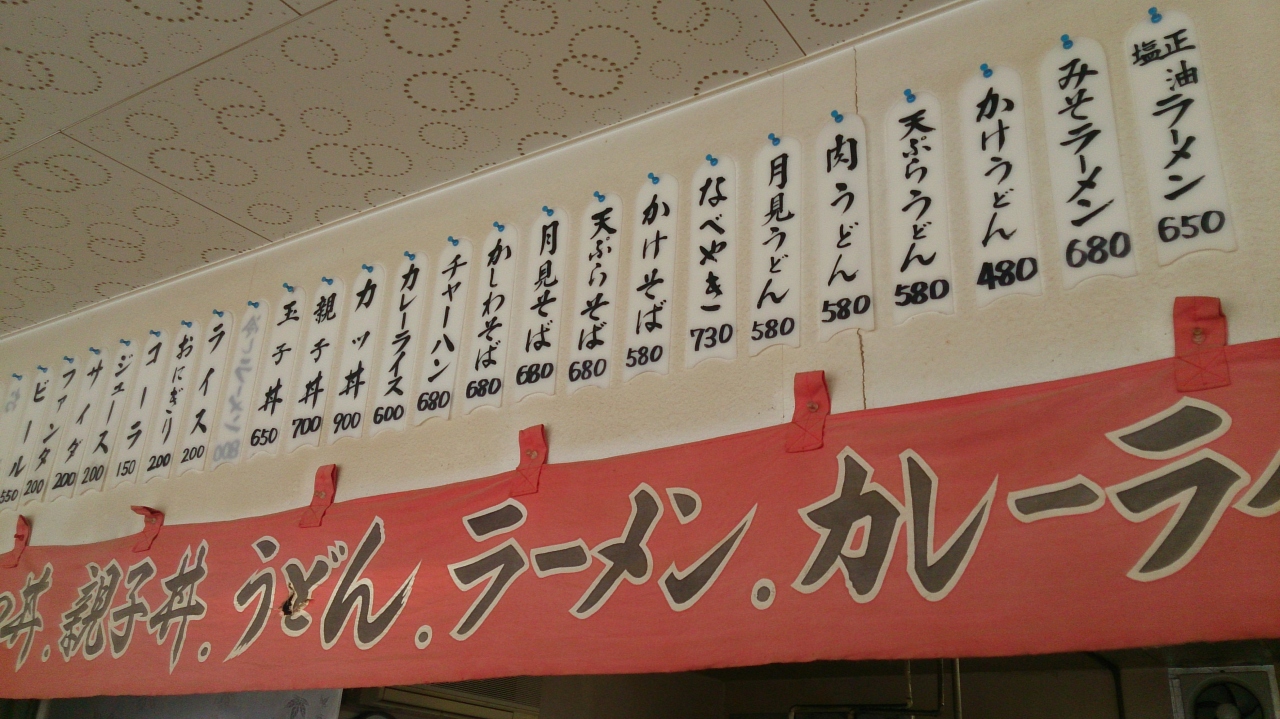 正油
塩
ラーメン 650
みそラーメン 680
かけうどん 480
天ぷらうどん 580
肉うどん 580
月見うどん 580
なべやき 730
かけそば 580
天ぷらそば 680
月見そば 680
かしわそば 680
チャーハン 680
カレーライス 600
カツ丼 900
親子丼 700
玉子丼 650
ラーメン 800
ライス 200
おにぎり 200
コーラ 150
ジュース 200
サイダ 200
ファンタ 200
ビール 550
丼.親子丼.うどん.ラーメン.カレーラ